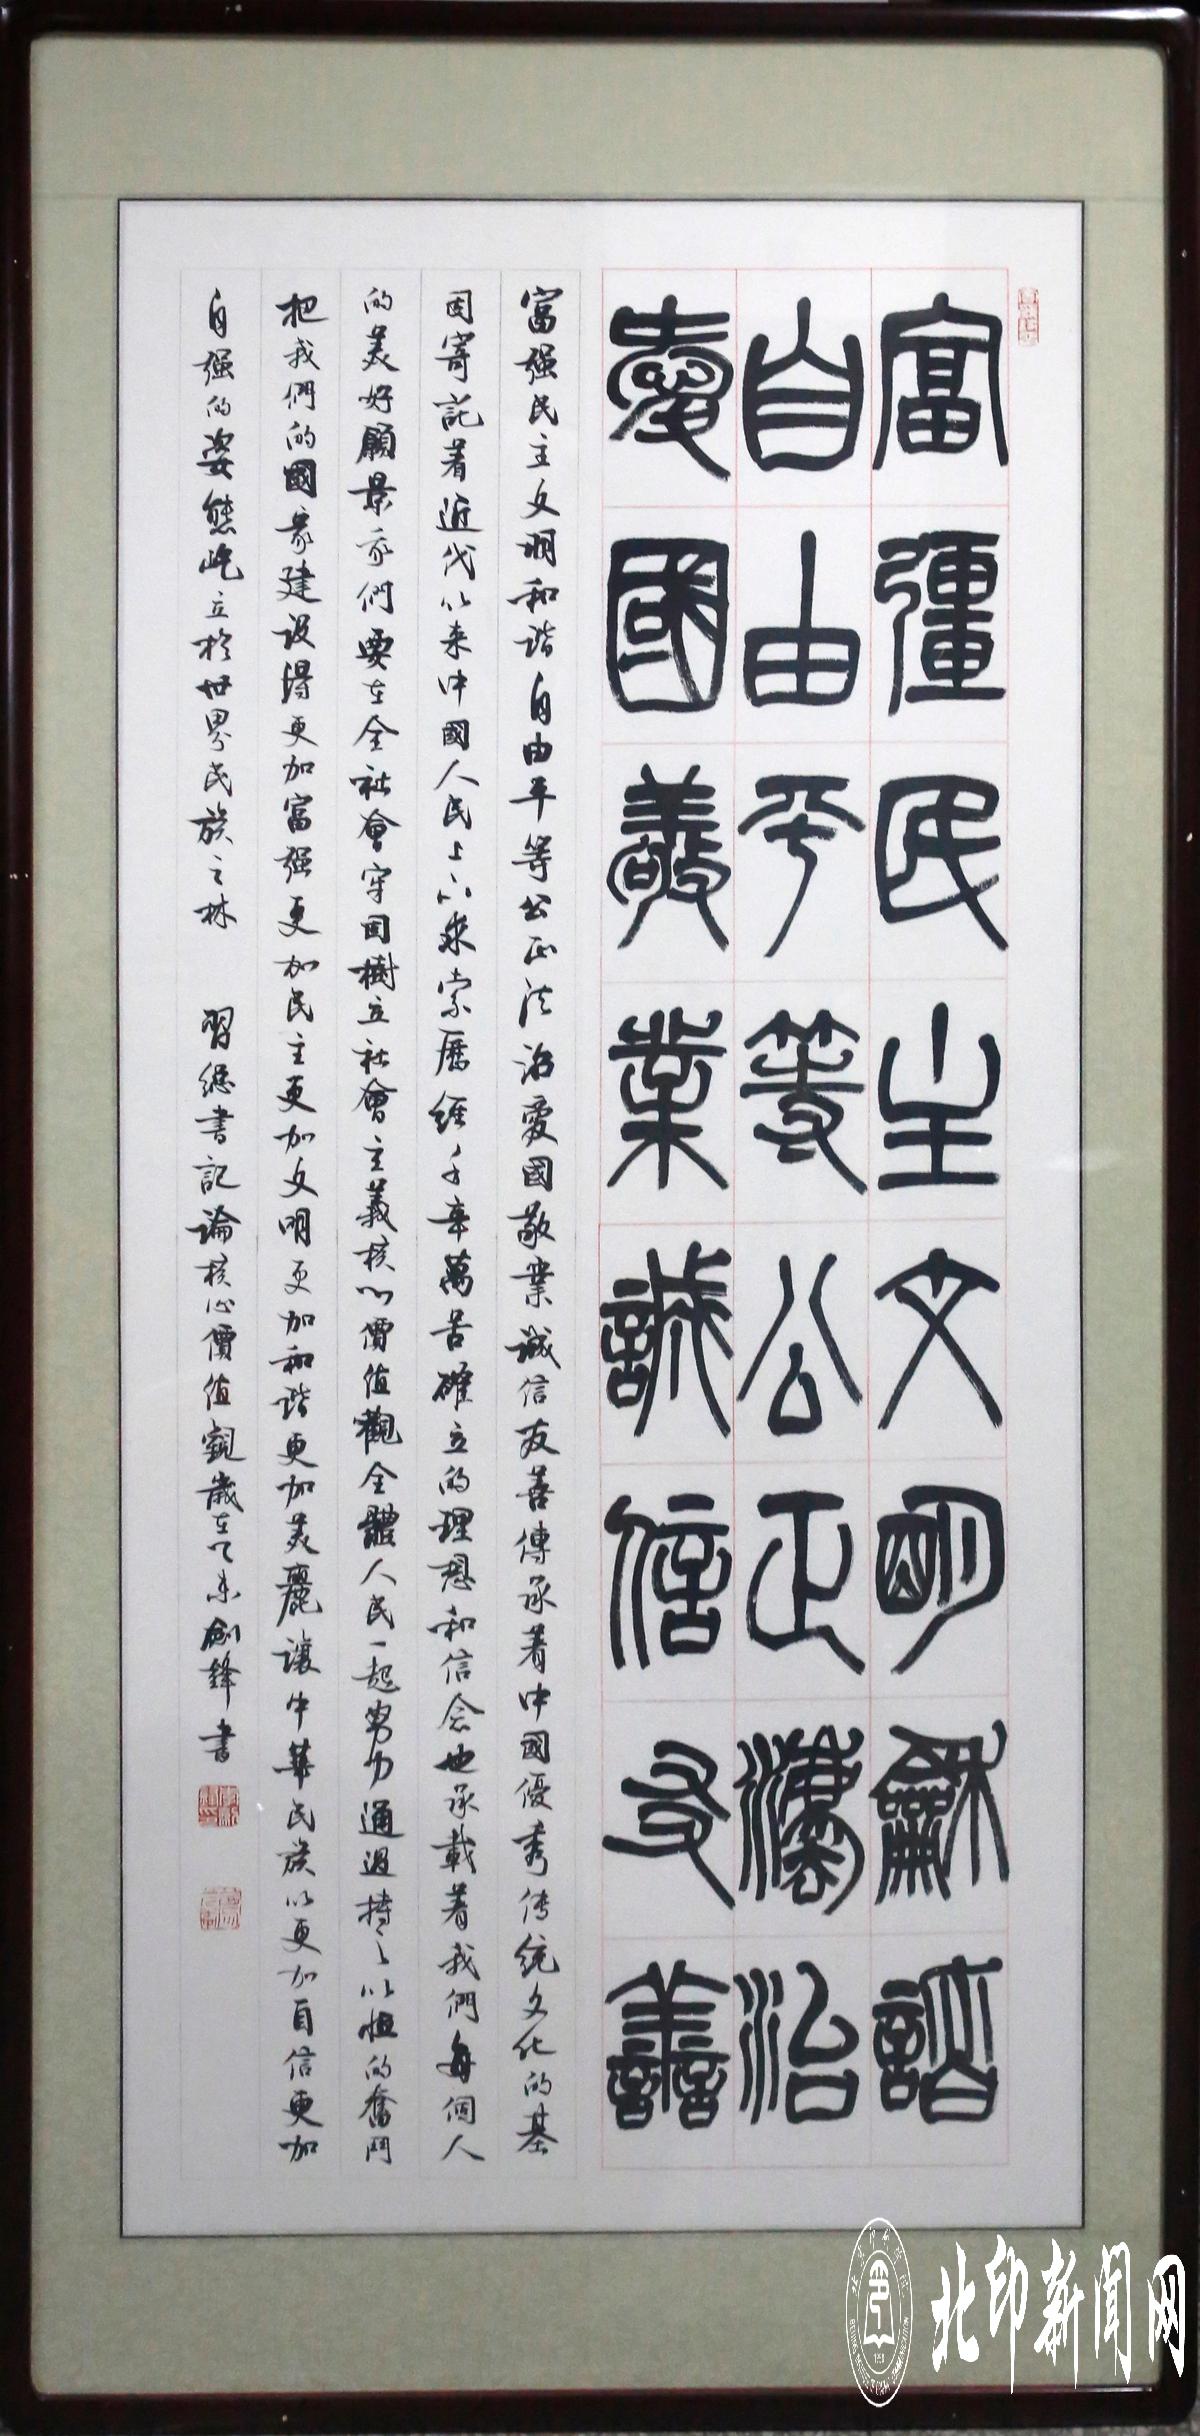 富彊民主文明龢諧
自由平等公正灋治
愛國敬業誠信友善
富强民主文明和谐自由平等公正法治愛國敬業誠信友善傳承着中國優秀传统文化的基
因寄託着近代以来中國人民上下求索歷經千辛萬苦確立的理想和信念也承載着我們每個人
的美好願景我們要在全社會牢固樹立社會主義核心價值觀全體人民一起努力通過持之以恒的奮鬥
把我們的國家建设得更加富强更加民主更加文明更加和谐更加美麗讓中華民族以更加自信更加
自强的姿態屹立於世界民族之林 習總書記論核心價值觀歲在乙未劍鋒書
北印新闻网